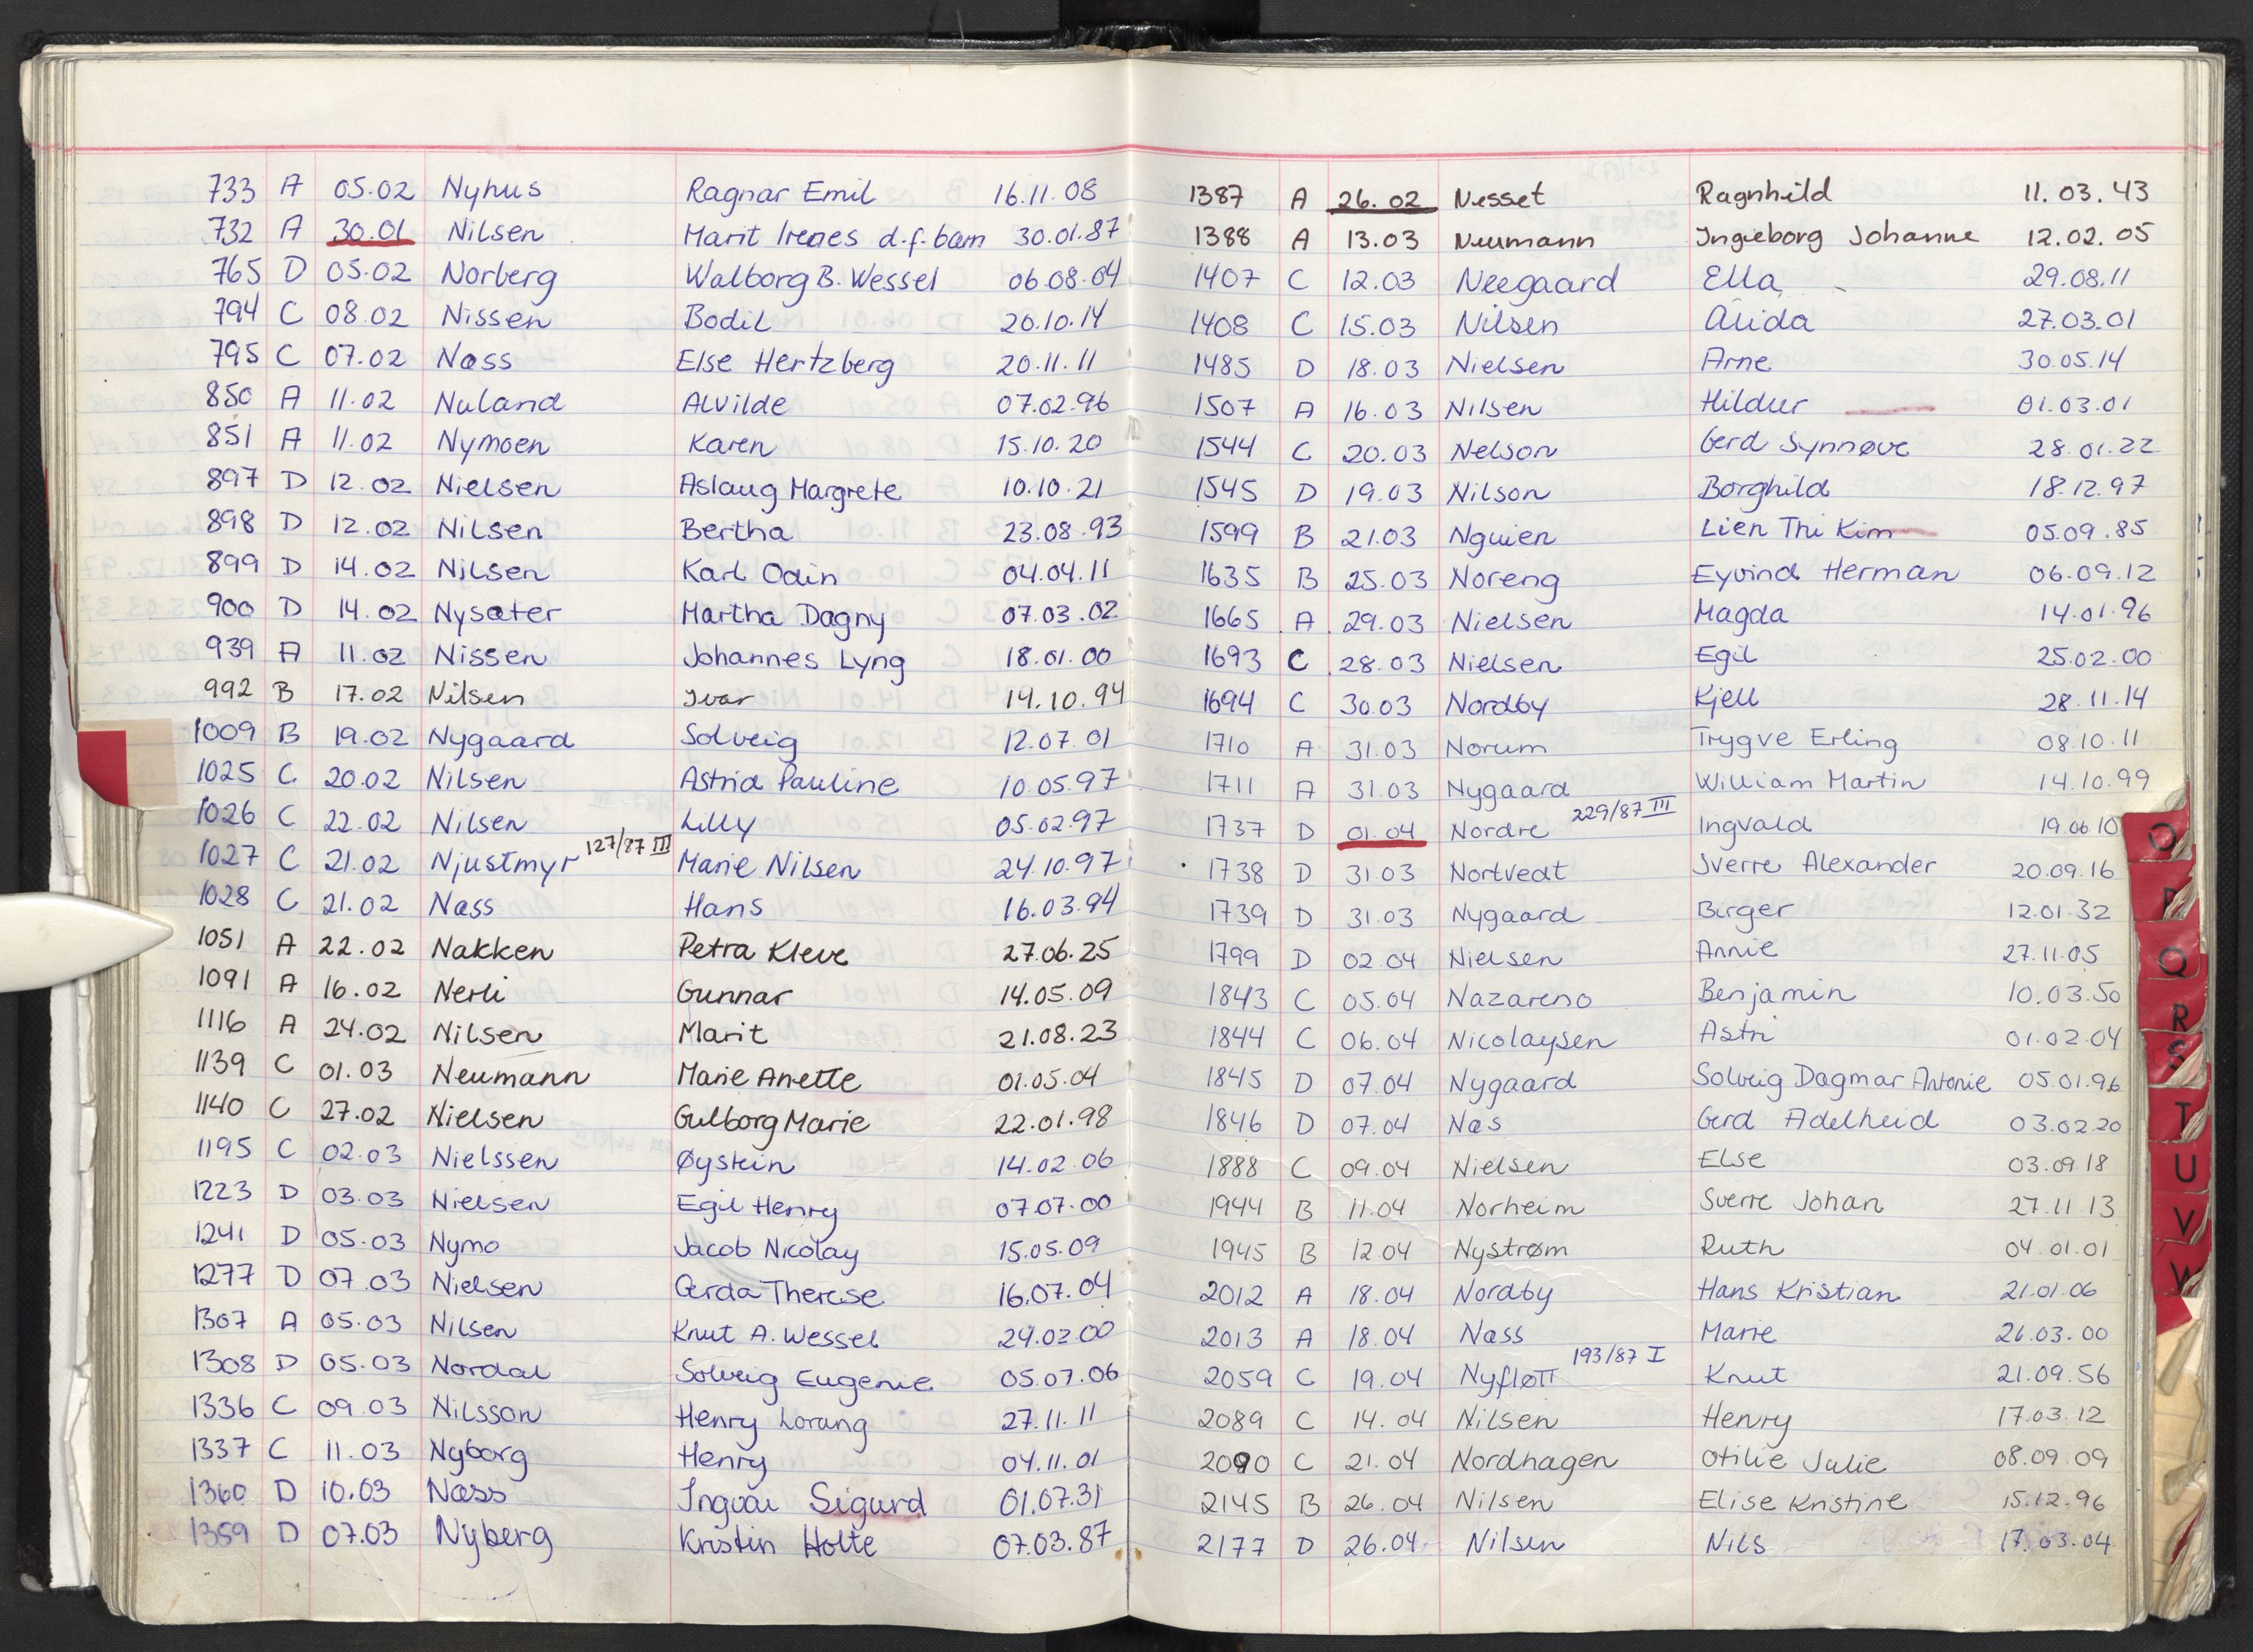 733 A 05.02 Nyhus Ragnar Emil 16.11.08
732 A 30.01 Nilsen Marit Irenes d.f. barn 30.01.87
765 D 05.02 Norberg Walborg B. Wessel 06.08.04
794 C 08.02 Nissen Bodil 20.10.14
795 C 07.02 Næss Else Hertzberg 20.11.11
850 A 11.02 Nuland Alvilde 07.02.96
851 A 11.02 Nymoen Karen 15.10.20
897 D 12.02 Nielsen Aslaug Margrete 10.10.21
898 D 12.02 Nilsen Bertha 23.08.93
899 D 14.02 Nilsen Karl Odin 04.04.11
900 D 14.02 Nysæter Martha Dagny 07.03.02
939 A 11.02 Nissen Johannes Lyng 18.01.00
992 B 17.02 Nilsen Ivar 14.10.94
1009 B 19.02 Nygaard Solveig 12.07.01
1025 C 20.02 Nilsen Astrid Pauline 10.05.97
1026 C 22.02 Nilsen Lilly 05.02.97
1027 C 21.02 Njustmyr 127/87 III Marie Nilsen 24.10.97
1028 C 21.02 Næss Hans 16.03.94
1051 A 22.02 Nakken Petra Kleve 27.06.25
1091 A 16.02 Nerli Gunnar 14.05.09
1116 A 24.02 Nilsen Marit 21.08.23
1139 C 01.03 Neumann Marie Anette 01.05.04
1140 C 27.02 Nielsen Gulborg Marie 22.01.98
1195 C 02.03 Nielssen Øystein 14.02.06
1223 D 03.03 Nielsen Egil Henry 07.07.00
1241 D 05.03 Nymo Jacob Nicolay 15.05.09
1277 D 07.03 Nielsen Gerda Therese 16.07.04
1307 A 05.03 Nilsen Knut A. Wessel 24.02.00
1308 D 05.03 Nordal Solveig Eugenie 05.07.06
1336 C 09.03 Nilsson Henry Lorang 27.11.11
1337 C 11.03 Nyborg Henry 04.11.01
1360 D 10.03 Næss Ingvar Sigurd 01.07.31
1359 D 07.03 Nyberg Kristin Holte 07.03.87
1387 A 26.02 Nesset Ragnhild 11.03.43
1388 A 13.03 Neumann Ingeborg Johanne 12.02.05
1407 C 12.03 Neegaard Ella 29.08.11
1408 C 15.03 Nilsen Alida 27.03.01
1485 D 18.03 Nielsen Arne 30.05.14
1507 A 16.03 Nilsen Hildur 01.03.01
1544 C 20.03 Nelson Gerd Synnøve 28.01.22
1545 D 19.03 Nilson Borghild 18.12.97
1599 B 21.03 Nguien Lien Thi Kim 05.09.85
1635 B 25.03 Noreng Eyvind Herman 06.09.12
1665 A 29.03 Nielsen Magda 14.01.96
1693 C 28.03 Nielsen Egil 25.02.00
1694 C 30.03 Nordby Kjell 28.11.14
1710 A 31.03 Norum Trygve Erling 08.10.11
1711 A 31.03 Nygaard William Martin 14.10.99
1737 D 01.04 Nordre 229/87 III Ingvald 19.06.10
1738 D 31.03 Nortvedt Sverre Alexander 20.09.16
1739 D 31.03 Nygaard Birger 12.01.32
1799 D 02.04 Nielsen Annie 27.11.05
1843 C 05.04 Nazareno Benjamin 10.03.50
1844 C 06.04 Nicolaysen Astri 01.02.04
1845 D 07.04 Nygaard Solveig Dagmar Antonie 05.01.96
1846 D 07.04 Næs Gerd Adelheid 03.02.20
1888 C 09.04 Nielsen Else 03.09.18
1944 B 11.04 Norheim Sverre Johan 27.11.13
1945 B 12.04 Nystrøm Ruth 04.01.01
2012 A 18.04 Nordby Hans Kristian 21.01.06
2013 A 18.04 Næss Marie 26.03.00
2059 C 19.04 Nyfløtt 193/87 I Knut 21.09.56
2089 C 14.04 Nilsen Henry 17.03.12
2090 C 21.04 Nordhagen Otilie Julie 08.09.09
2145 B 26.04 Nilsen Elise Kristine 15.12.96
2177 D 26.04 Nilsen Nils 17.03.04
O
P
Q
R
S
T
U
V
W